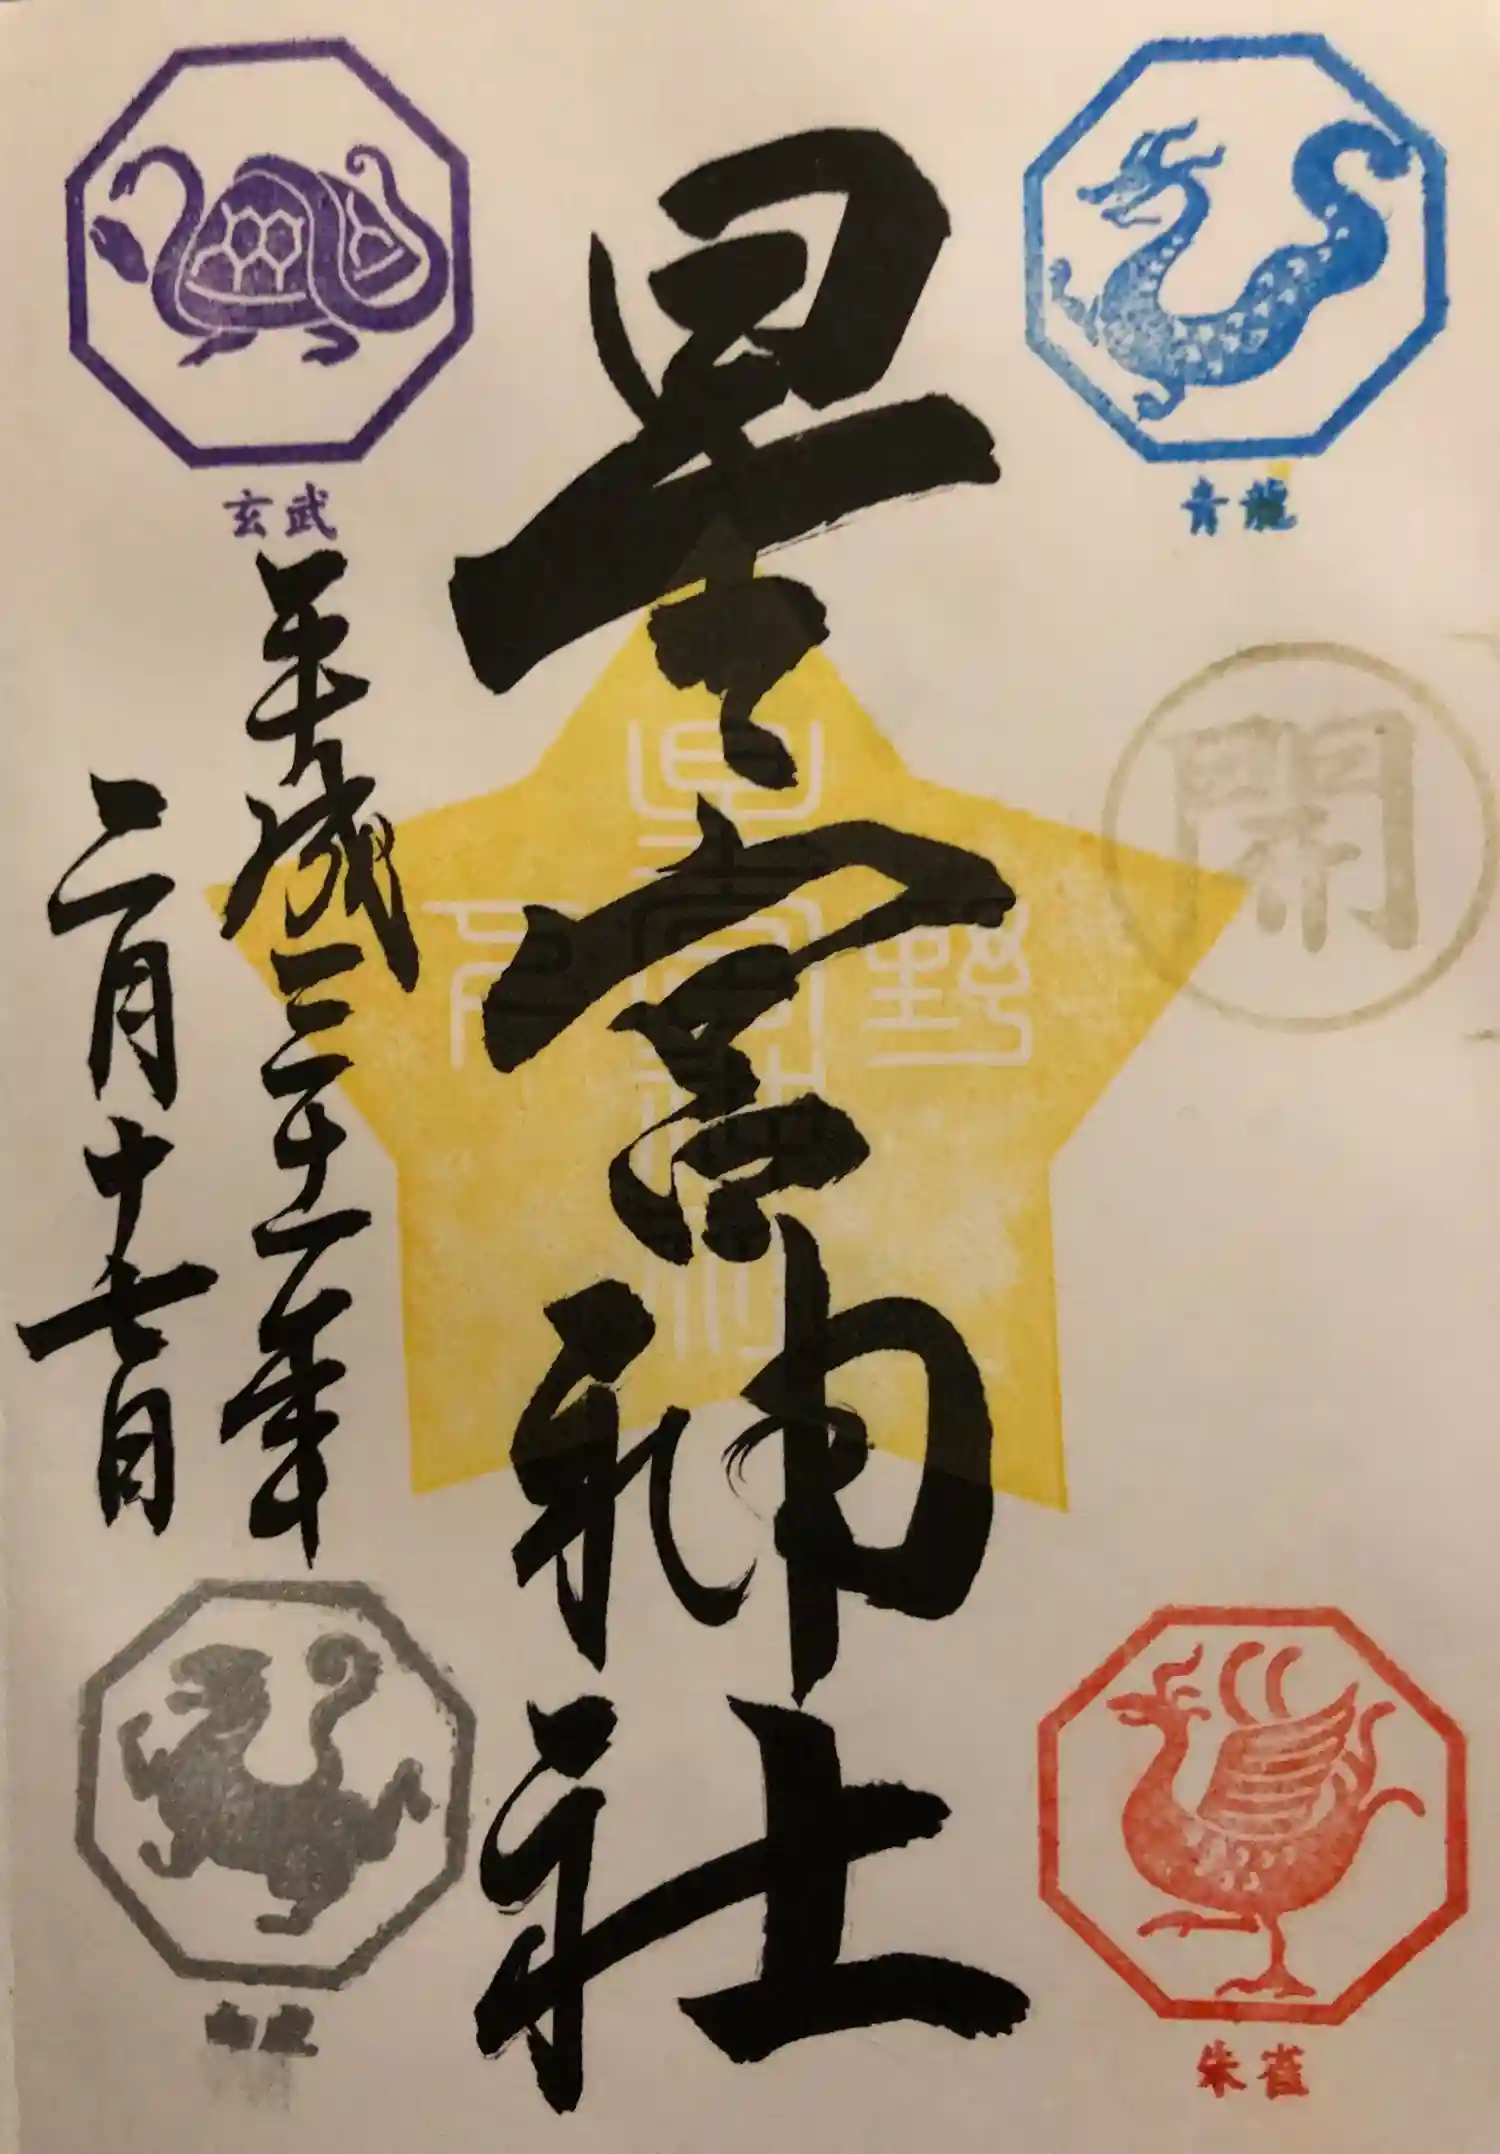 青龍
朱雀
星宮神社
星宮神社
玄武
平成三十一年
二月十七日